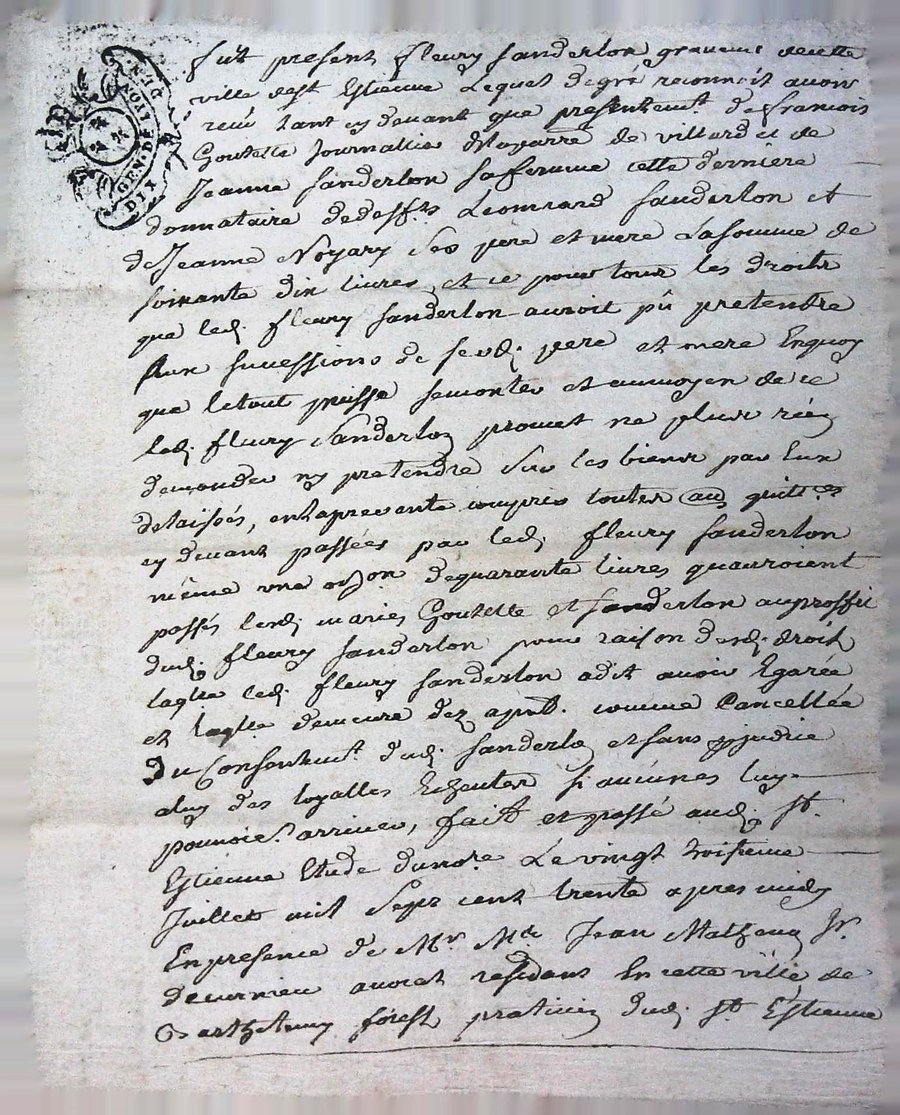 GEN. DE LION
DIX DEN.
fut present fleury sanderlon graveur decette
ville de st Estienne Lequel degré reconnoit avoir
receu tant cy devant que presentemt. de francois
Goutelle Journallier de villard et de
Jeanne sanderlon safemme cette derniere
donnataire dedeffts Leonnard sanderlon et
de Jeanne Noyary ses pere et mere Lasomme de
soixante dix livres et ce pour tous les droits
que led. fleury sanderlon auroit pû pretendre
aux successions de sesd. pere et mere Enquoy
que letout puisse semonter et aumoyen de ce
led. fleury sanderlon promet ne plus rien
demander ny pretendre sur les biens par Eux
delaissés, compris toutes quittces
cy devant passées par led. fleury sanderlon
même une dequarante livres quauroient
passés lesd. mariés Goutelle et sanderlon auproffit
dud. fleury sanderlon pour raison desd. droits
laqlle led. fleury sanderlon adit avoir Egarée
et laqlle demeure dez apnt. comme Cancellée
du Consentemt. dud. sanderlon et sans prejudice
aluy des loyalles Echeutes si aucunes luy
pouvoient arriver, fait et passé aud. st.
Estienne Etude dunore Le vingt troisieme
Juillet mil sept cent trente apres midy
En presence de Mr. Me. Jean Sr.
decurnieu avocat residant En cette ville de
Barthelemy forest praticien dud. st. Estienne